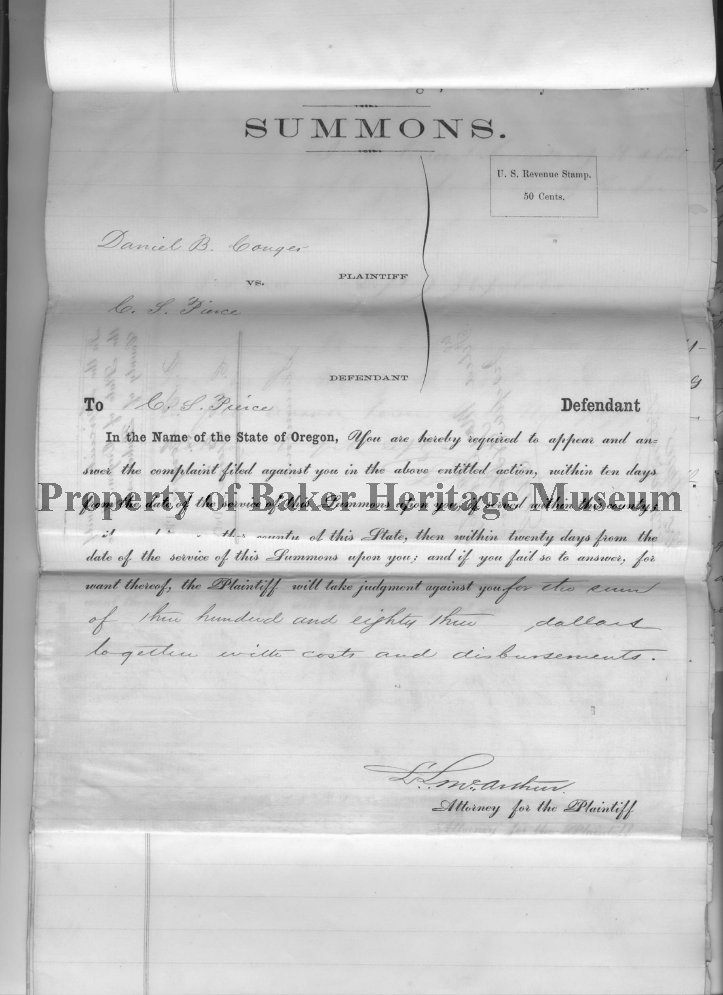 SUMMONS.
U. S. Revenue Stamp,
50 Cents.
Daniel B. Conger
PLAINTIFF
vs.
C. S. Pierce
DEFENDANT
To C. S. Pierce Defendant
In the Name of the State of Oregon, You are hereby required to appear and an-
swer the complaint filed against you in the above entitled action, within ten days
Property of Baker Heritage Museum
from the date of the service of this Summons upon you, if served within this county;
this county of this State, then within twenty days from the
date of the service of this Summons upon you; and if you fail so to answer, for
want thereof, the Plaintiff will take judgment against you for the sum
of three hundred and eighty three dollars
together with costs and disbursements.
L. L. McArthur
Attorney for the Plaintiff